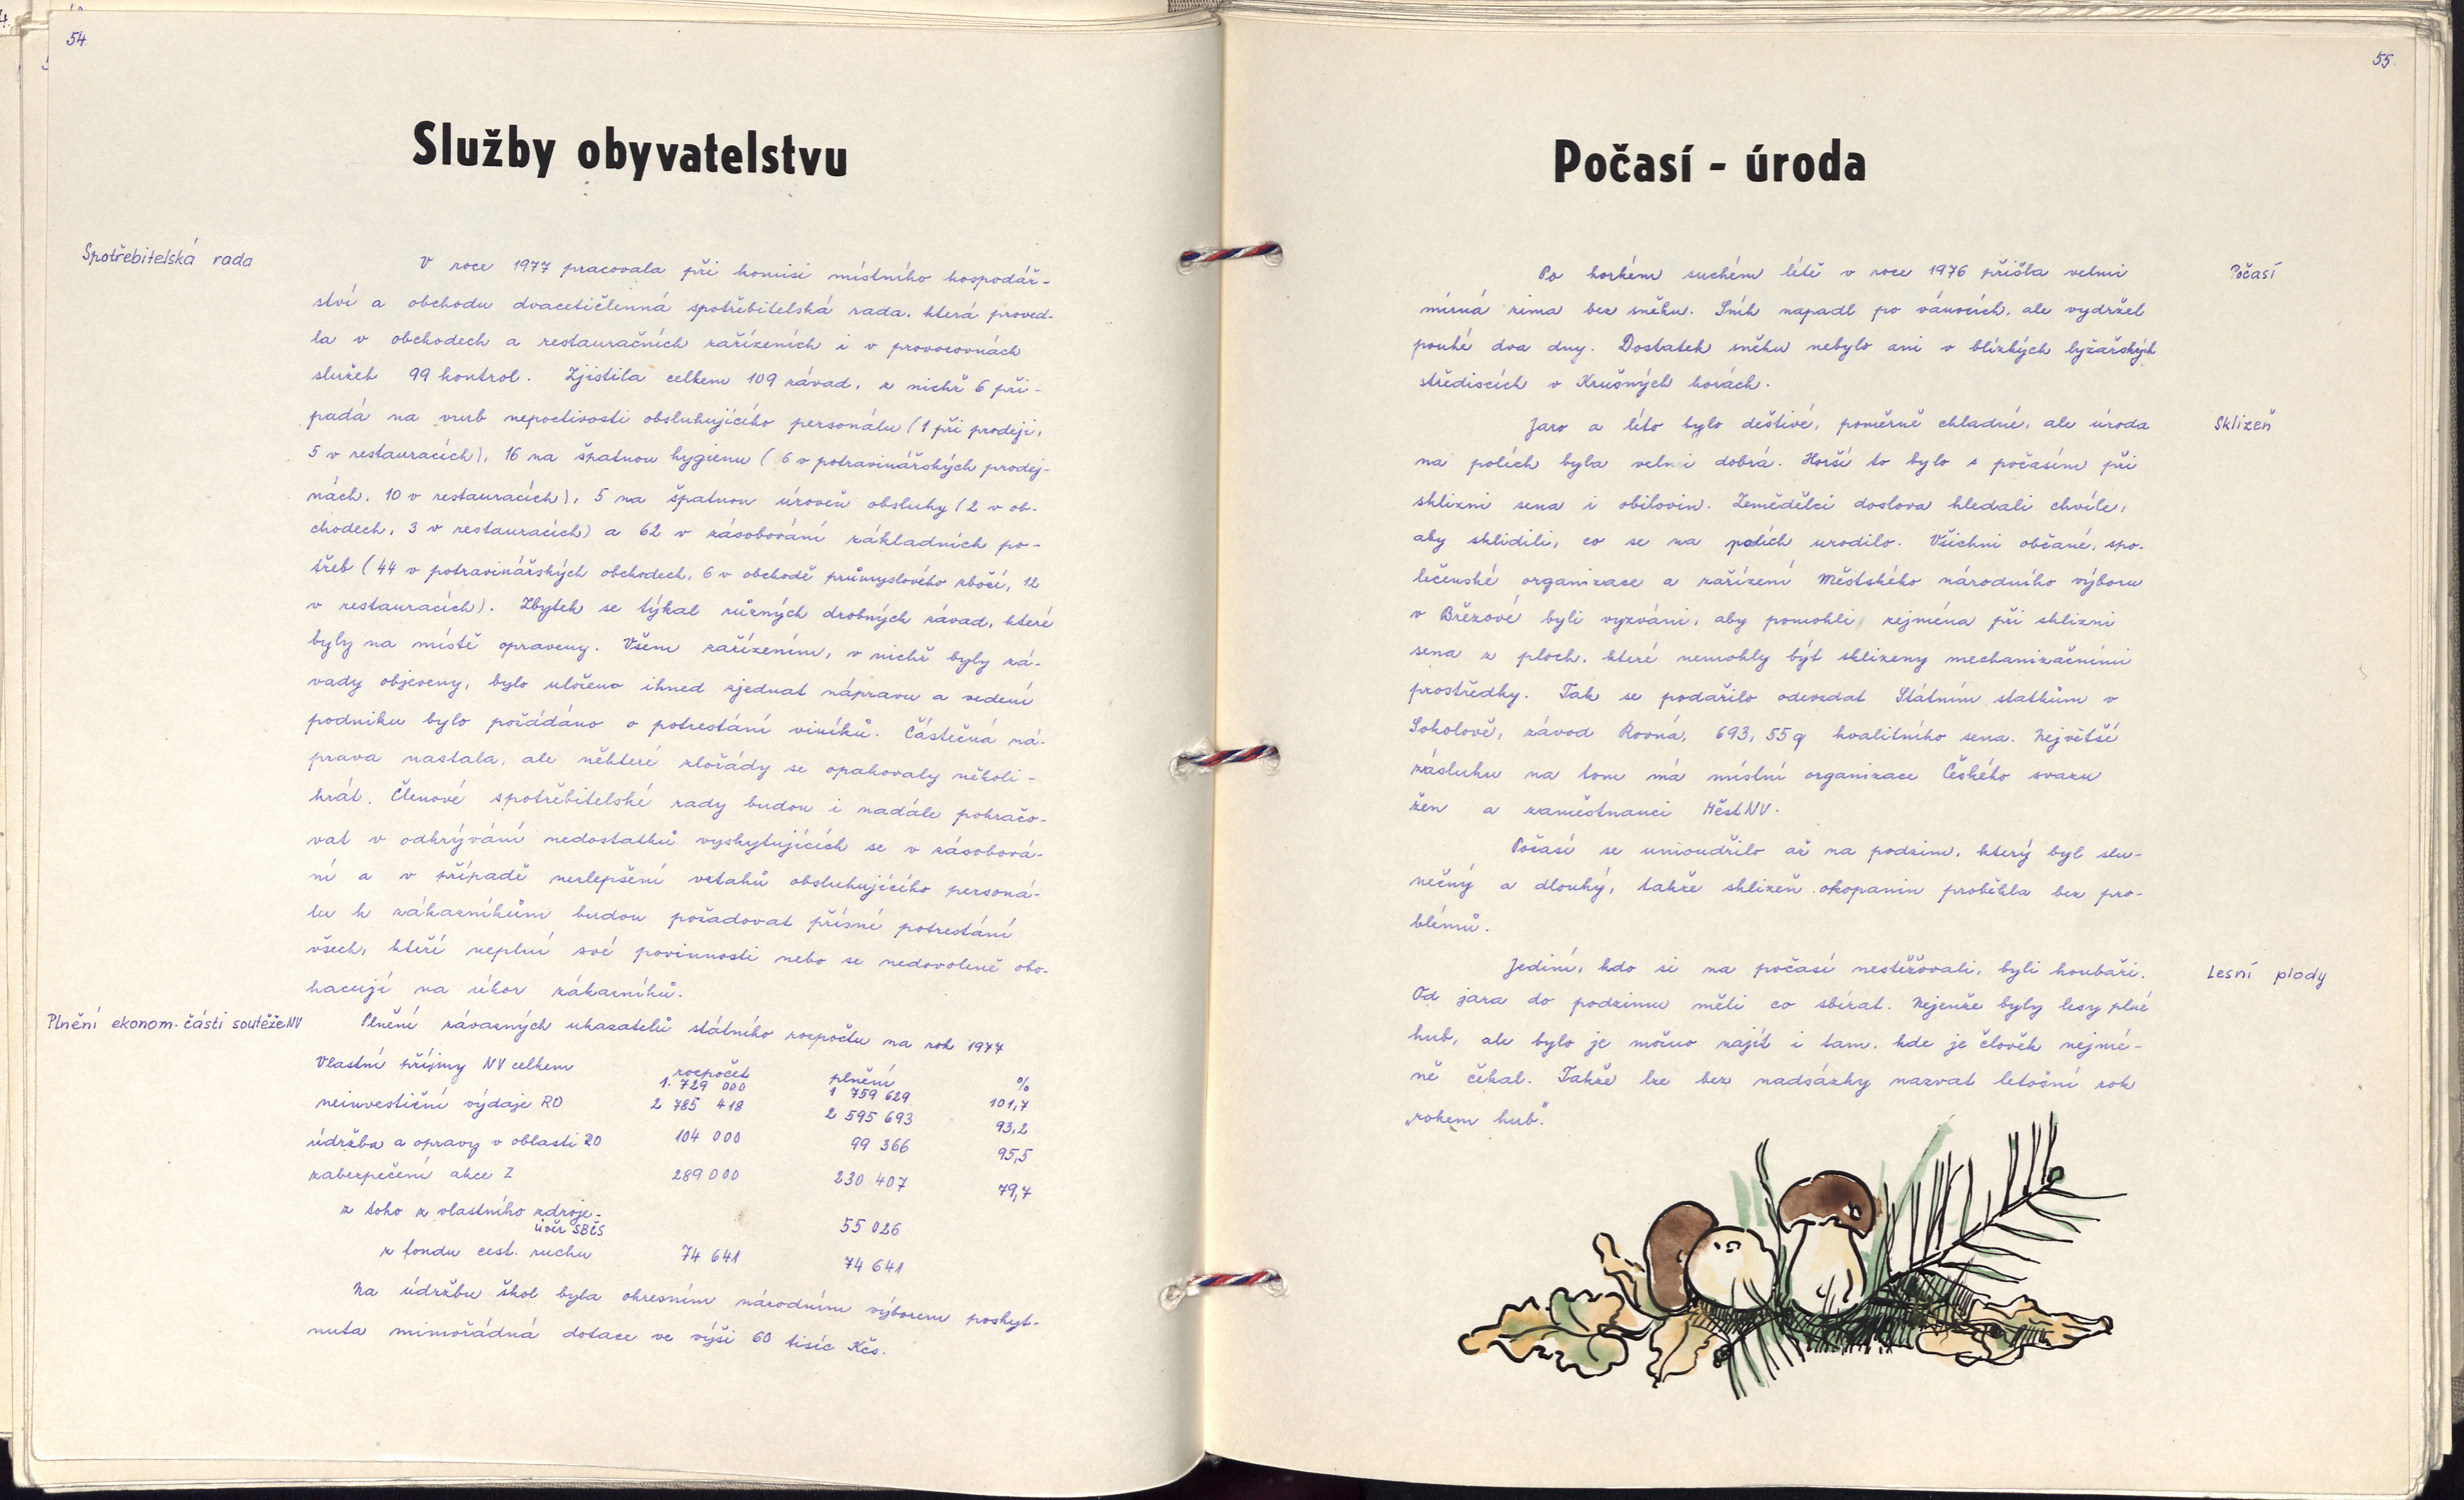 54.
Služby obyvatelstvu
Spotřebitelská rada
V roce 1977 pracovala při komisi místního hospodář-
ství a obchodu dvacetičlenná spotřebitelská rada, která proved-
la v obchodech a restauračních zařízeních i v provozovnách
služeb 99 kontrol. Zjistila celkem 109 závad, z nichž 6 při-
padá na vrub nepoctivosti obsluhujícího personálu (1 při prodeji,
5 v restauracích), 16 na špatnou hygienu (6 v potravinářských prodej-
nách, 10 v restauracích), 5 na špatnou úroveň obsluhy (2 v ob-
chodech, 3 v restauracích) a 62 v zásobování základních po-
třeb (44 v potravinářských obchodech, 6 v obchodě průmyslového zboží, 12
v restauracích). Zbytek se týkal různých drobných závad, které
byly na místě opraveny. Všem zařízením, v nichž byly zá-
vady objeveny, bylo uloženo ihned zjednat nápravu a vedení
podniku bylo požádáno o potrestání viníků. Částečná ná-
prava nastala, ale některé zlořády se opakovaly několi-
krát. Členové spotřebitelské rady budou i nadále pokračo-
vat v odkrývání nedostatků vyskytujících se v zásobová-
ní a v případě nezlepšení vztahů obsluhujícího personá-
lu k zákazníkům budou požadovat přísné potrestání
všech, kteří neplní své povinnosti nebo se nedovoleně obo-
hacují na úkor zákazníků.
Plnění ekonom. části soutěže NV
Plnění závazných ukazatelů státního rozpočtu na rok 1977
rozpočet plnění %
Vlastní příjmy NV celkem 1. 729 000 1 759 629 101,7
neinvestiční výdaje RO 2 785 418 2 595 693 93,2
údržba a opravy v oblasti RO 104 000 99 366 95,5
zabezpečení akce Z 289 000 230 407 79,7
z toho z vlastního zdroje-
úvěr SBČS 55 026
z fondu cest. ruchu 74 641 74 641
Na údržbu škol byla okresním národním výborem poskyt-
nuta mimořádná dotace ve výši 60 tisíc Kčs.
55.
Počasí - úroda
Počasí
Po horkém suchém létě v roce 1976 přišla velmi
mírná zima bez sněhu. Sníh napadl po vánocích, ale vydržel
pouhé dva dny. Dostatek sněhu nebylo ani v blízkých lyžařských
střediscích v Krušných horách.
Sklizeň
Jaro a léto bylo deštivé, poměrně chladné, ale úroda
na polích byla velmi dobrá. Horší to bylo s počasím při
sklizni sena i obilovin. Zemědělci doslova hledali chvíle,
aby sklidili, co se na polích urodilo. Všichni občané, spo-
lečenské organizace a zařízení Městského národního výboru
v Březové byli vyzváni, aby pomohli zejména při sklizni
sena z ploch, které nemohly být sklizeny mechanizačními
prostředky. Tak se podařilo odevzdat Státním statkům v
Sokolově, závod Rovná, 693, 55 q kvalitního sena. Největší
zásluhu na tom má místní organizace Českého svazu
žen a zaměstnanci MěstNV.
Počasí se umoudřilo až na podzim, který byl slu-
nečný a dlouhý, takže sklizeň okopanin proběhla bez pro-
blémů.
Lesní plody
Jediní, kdo si na počasí nestěžovali, byli houbaři.
Od jara do podzimu měli co sbírat. Nejenže byly lesy plné
hub, ale bylo je možno najít i tam, kde je člověk nejmé-
ně čekal. Takže lze bez nadsázky nazvat letošní rok
„rokem hub“.